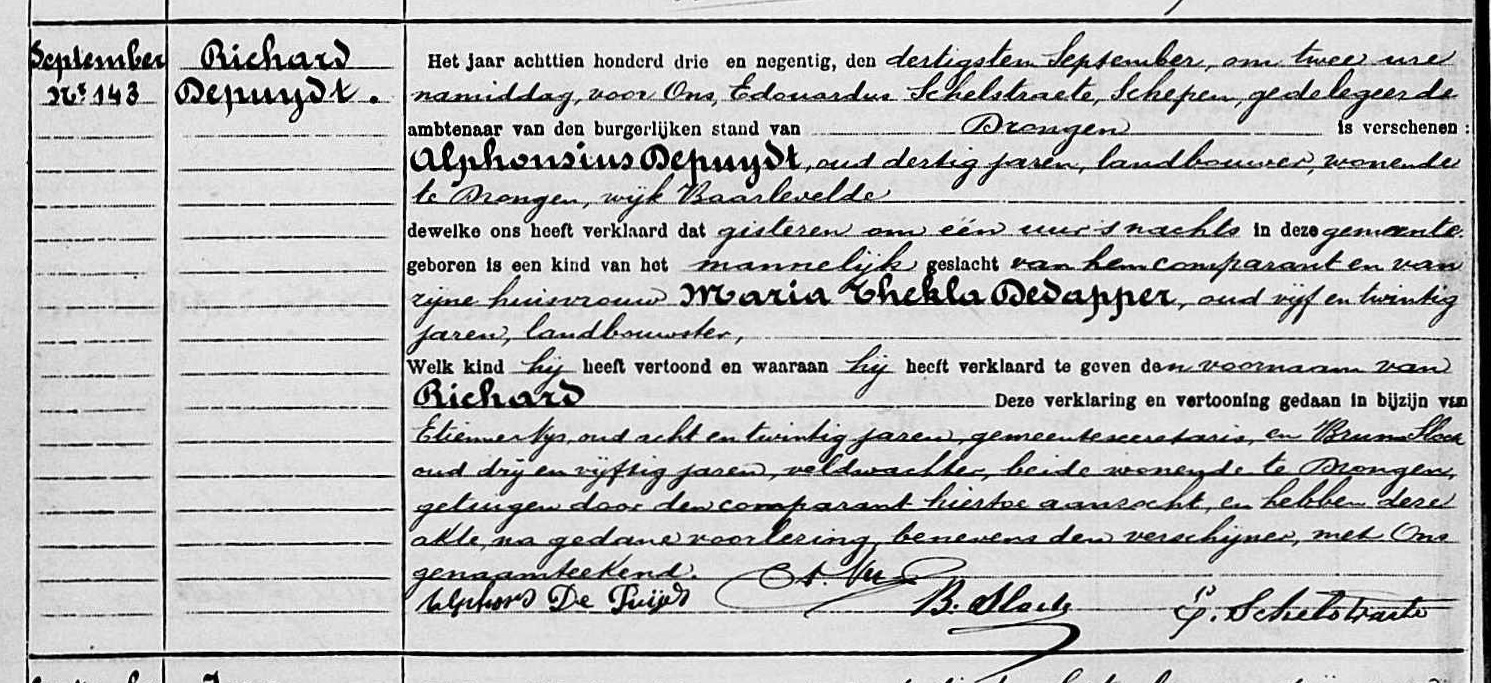 September
Nr 143
Richard
Depuydt.
Het jaar achttien honderd drie en negentig, den dertigsten September, om twee ure
namiddag, voor Ons, Edouardus Schelstraete, Schepen, gedelegeerde
ambtenaar van den burgerlijken stand van Drongen is verschenen :
Alphonsius Depuydt, oud dertig jaren, landbouwer, wonende
te Drongen, wijk Baarlevelde
dewelke ons heeft verklaard dat gisteren om één uur 's nachts in deze gemeente
geboren is een kind van het mannelijk geslacht van hem comparant en van
zijne huisvrouw Maria Thekla Dedapper, oud vijf en twintig
jaren, landbouwster,
Welk kind hij heeft vertoond en waaraan hij heeft verklaard te geven den voornaam van
Richard Deze verklaring en vertooning gedaan in bijzijn van
Etienne Nys, oud acht en twintig jaren, gemeentesecretaris, en Bruno Slock
oud drij en vijftig jaren, veldwachter, beide wonende te Drongen,
getuigen door den comparant hiertoe aanzocht, en hebben deze
akte, na gedane voorlezing, benevens den verschijner, met Ons
genaamteekend.
Alphons De Puijdt
B. Slock
E. Schelstraete